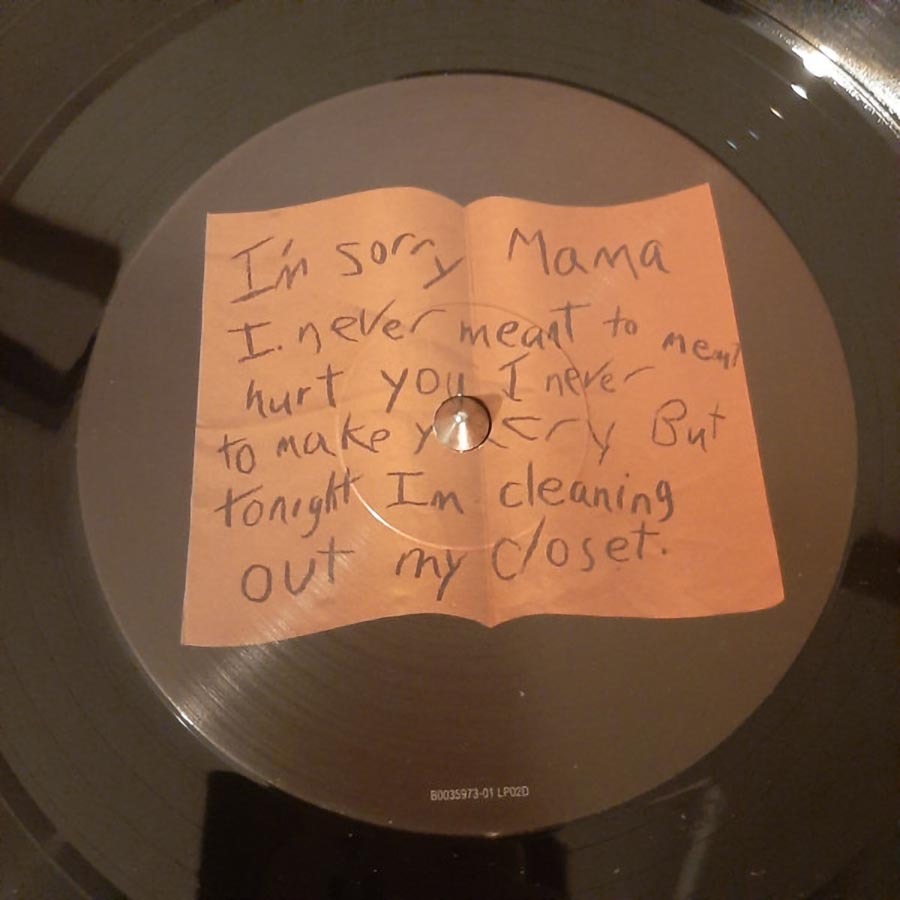 I'm sorry Mama
I never meant to
hurt you I never meant
to make y cry But
tonight Im cleaning
out my closet.
B0035973-01 LP02D